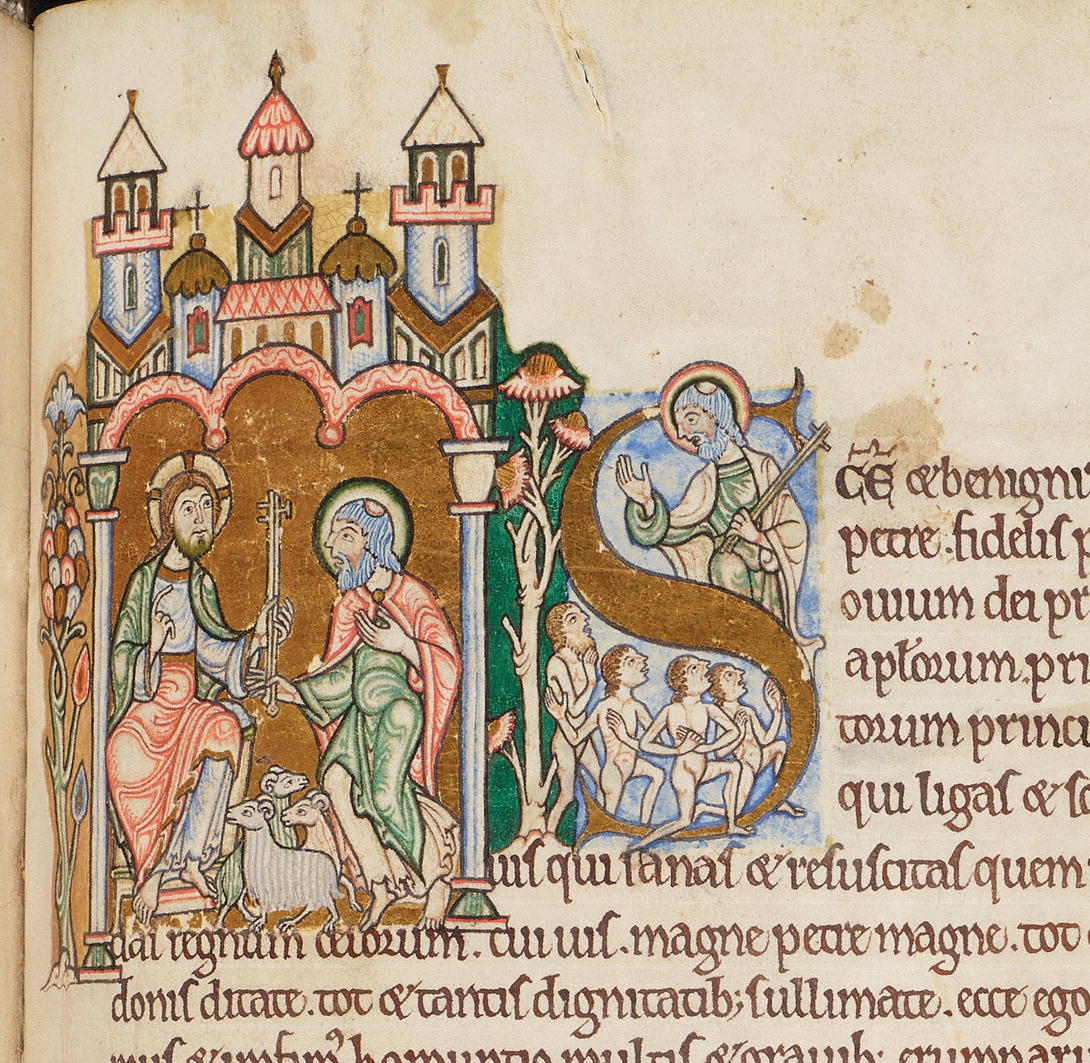 S CE & benigni
petre . fidelis p
ouium dei pr
aplorum . pri
torum princi
qui ligas & s
uis qui sanas & resuscitas quem
das regnum celorum . cui uis . magne petre magne . tot
donis ditate . tot & tantis dignitatib; sullimate . ecce ego
homuntio multis & grauib;